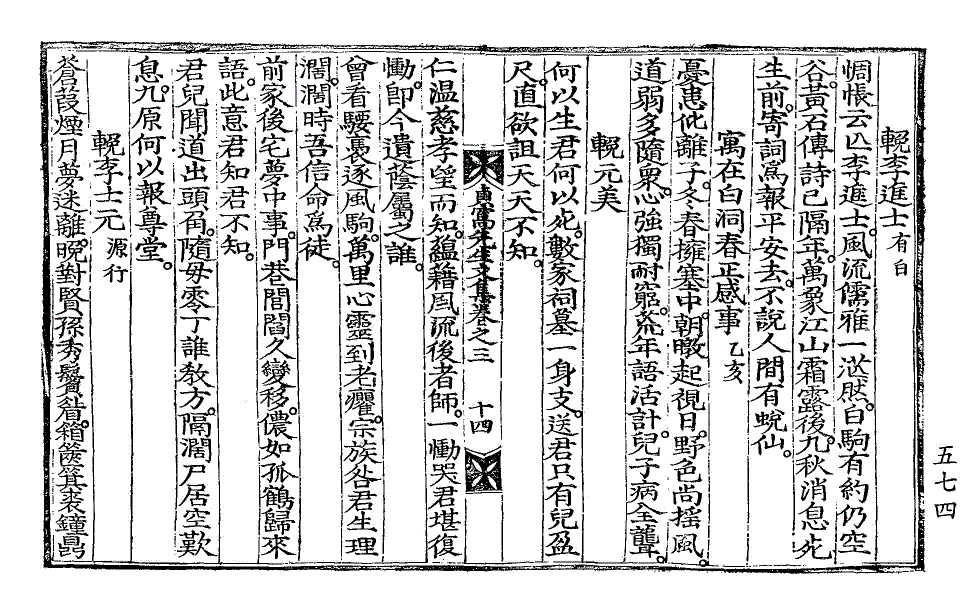 輓李進士 有白
惆悵云亡李進士風流儒雅一泫然白駒有約仍空
谷黃石傳詩已隔年萬象江山霜露後九秋消息死
生前寄詞爲報平安去不說人間有蛻仙
寓在白洞春正感事 乙亥
憂患仳離子冬春擁塞中朝暾起視日野色尙搖風
道弱多隨衆心強獨耐窮荒年語活計兒子病全聾
輓元美
何以生君何以死數家祠墓一身支送君只有兒盈
尺直欲詛天天不知
先生文集卷之三 十四
仁溫慈孝望而知蘊藉風流後者師一慟哭君堪復
慟卽今遺蔭屬之誰
會看騕褭逐風駒萬里心靈到老癯宗族咎君生理
濶濶時吾信命爲徒
前家後宅夢中事門巷閭閻久變移儂如孤鶴歸來
語此意君知君不知
君兒聞道出頭角隨母零丁誰敎方隔濶尸居空歎
息九原何以報尊堂
輓李士元 源行
蒼葭煙月夢迷離晩對賢孫秀鬢眉箱篋箕裘鐘鼎
五七四